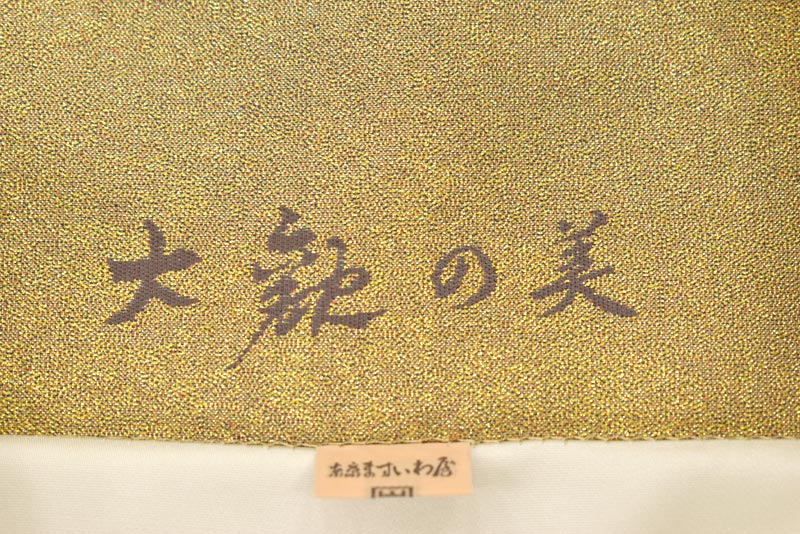 大観の美
東京ますいわ屋